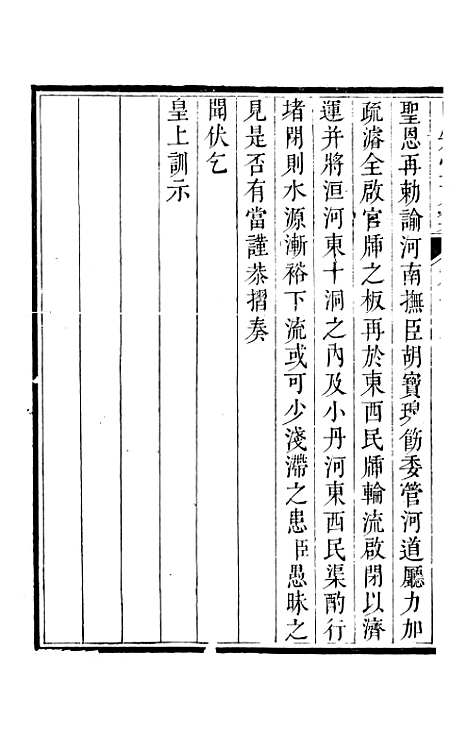 聖恩再勅諭河南撫臣胡寶瑔飭委管河道廳力加
疏濬全啟官牐之板再於東西民牐輪流啟閉以濟
運并將洹河東十洞之內及小丹河東西民渠酌行
堵閉則水源漸裕下流或可少淺滯之患臣愚昧之
見是否有當謹恭摺奏
聞伏乞
皇上訓示